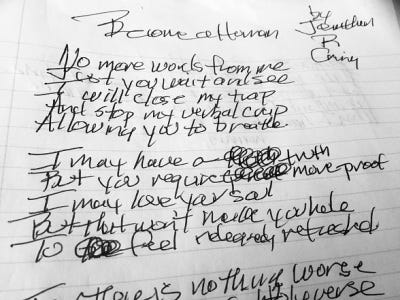 Become a Human
by
Jonathan
R.
No more words from me
Just you wait and see
I will close my trap
And stop my verbal crap
Allowing you to breathe.
I may have a truth
But you require more proof
I may love your soul
But that won't make you whole
To feel refreshed
there is nothing worse